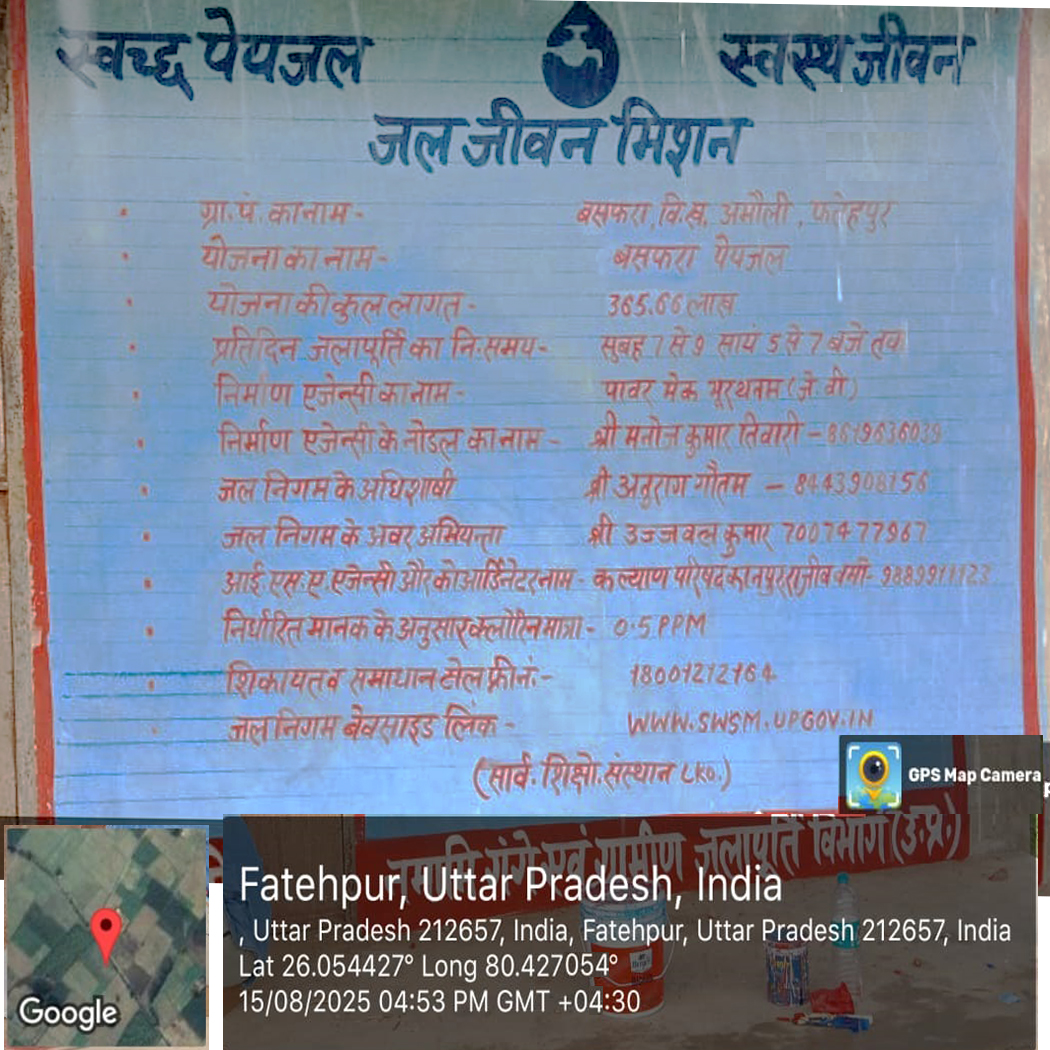 स्वच्छ पेयजल स्वस्थ जीवन
जल जीवन मिशन
ग्रा.पं. का नाम - बसफरा, वि.ख. अमौली, फतेहपुर
योजना का नाम - बसफरा पेयजल
योजना की कुल लागत - 365.66 लाख
प्रतिदिन जलापूर्ति का नि:समय - सुबह 7 से 9 सायं 5 से 7 बजे तक
निर्माण एजेन्सी का नाम - पावर मेक भूरथनम (जे. वी)
निर्माण एजेन्सी के नोडल का नाम - श्री मनोज कुमार तिवारी - 8619636039
जल निगम के अधिशाषी श्री अनुराण गौतम - 8443908156
जल निगम के अवर अभियन्ता श्री उज्जवल कुमार 7007477967
आई.एस.ए. एजेन्सी और कोआर्डिनेटर नाम - कल्याण परिषद कानपुर राजीव वर्मा -
निर्धारित मानक के अनुसार क्लोरिन मात्रा - 0.5 PPM
शिकायत व समाधान टोल फ्री नं:- 18001212164
जल निगम बेवसाइड लिंक - WWW.SWSM.UPGOV.IN
(सार्व. शिक्षो. संस्थान LKO.)
GPS Map Camera
नमामि गंगे एवं ग्रामीण जलापूर्ति विभाग (उ.प्र.)
Fatehpur, Uttar Pradesh, India
, Uttar Pradesh 212657, India, Fatehpur, Uttar Pradesh 212657, India
Lat 26.054427° Long 80.427054°
15/08/2025 04:53 PM GMT +04:30
Google